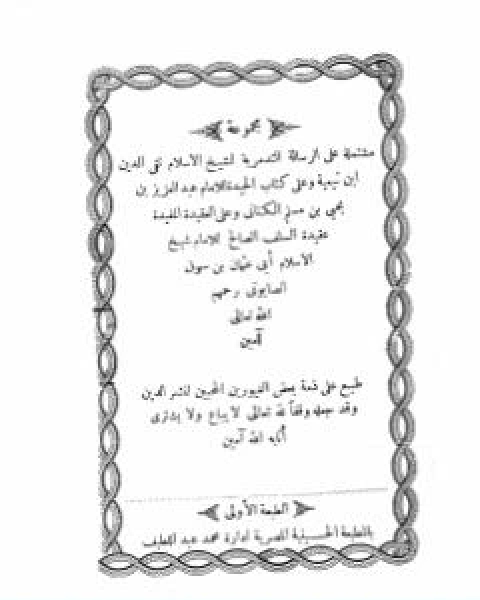 مجموعة
مشتملة على الرسالة التدمرية لشيخ الاسلام تقى الدين
ابن تيمية وعلى كتاب الحيدة للامام عبد العزيز بن
يحيى بن مسلم الكنانى وعلى العقيدة المفيدة
عقيدة السلف الصالح للامام شيخ
الاسلام أبى عثمان بن
الصابونى رحمهم
الله تعالى
آمين
طبع على ذمة بعض الغيورين المحبين لنشر الدين
وقد جعله وقفاً لله تعالى لا يباع ولا يشترى
أثابه الله آمين
الطبعة الأولى
بالمطبعة الحسينية المصرية ادارة محمد عبد اللطيف